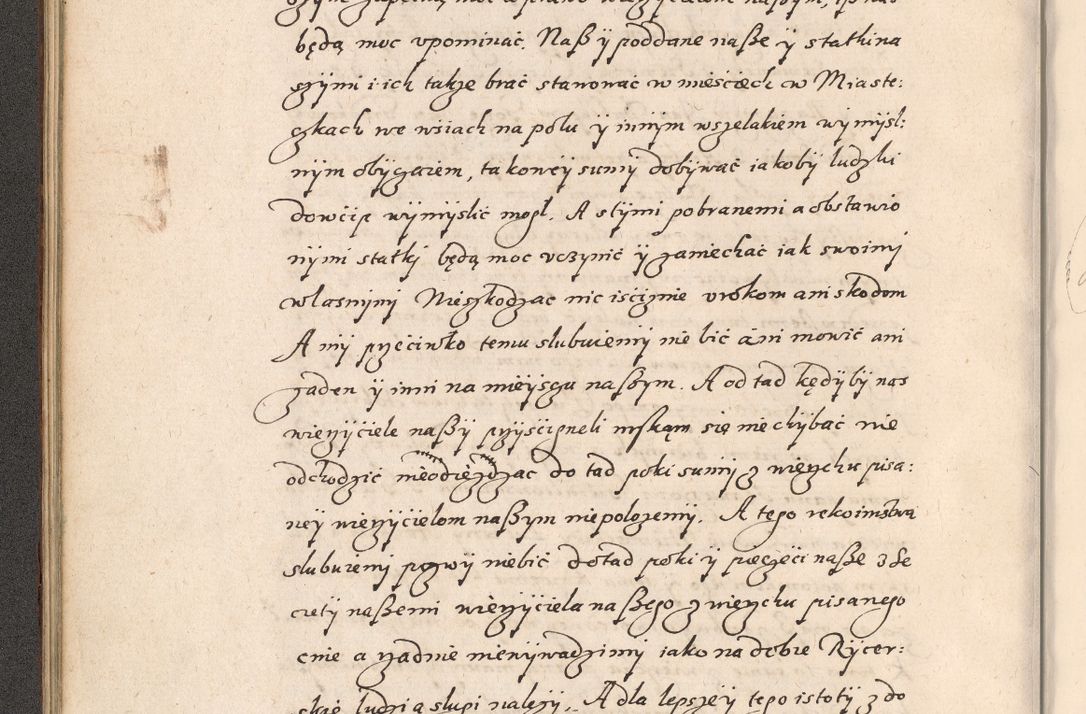 będą moc vpominać. Naß ÿ poddane naße ÿ statkina
szÿmi i ich także brać stanować w mieścięch w Miaste:
czkach we wsiach na polu ÿ innÿm wszelakiem wÿmÿsl:
nÿm obÿczaiem, takoweÿ sumÿ dobÿwać iakobÿ ludzki
dowćip wÿmÿslić mogł. A stÿmi pobranemi a obstawio
nÿmi statkÿ będą moc vczÿnić ÿ zaniechać iak swoimÿ
własnÿmÿ Nieszkodząc nic iśćiznie vrokom ani skodom
A mÿ przećiwko temu slubuiemÿ nie bić ani mowić ani
żaden ÿ inni na mieÿsczu naßÿm. A od tad kędÿbÿ nas
wierzÿćiele naßÿ przÿśćigneli się niechÿbać nie
odchodzić nieodieżdżac do tad poki sumÿ z wierzchu pisa:
neÿ wierzÿćielom naßÿm niepolożemÿ. A tego rekoimstwa
slubuiemÿ niebić dotad poki ÿ pieczęći naße z Se
cretÿ naßemi wierzÿćiela naßego z wierzchu pisanego
cnie a żadnie niewÿwadzimÿ iako na dobre Rÿcer:
skie ludzi a slupi należÿ. A dla lepszeÿ tego istotÿ z do